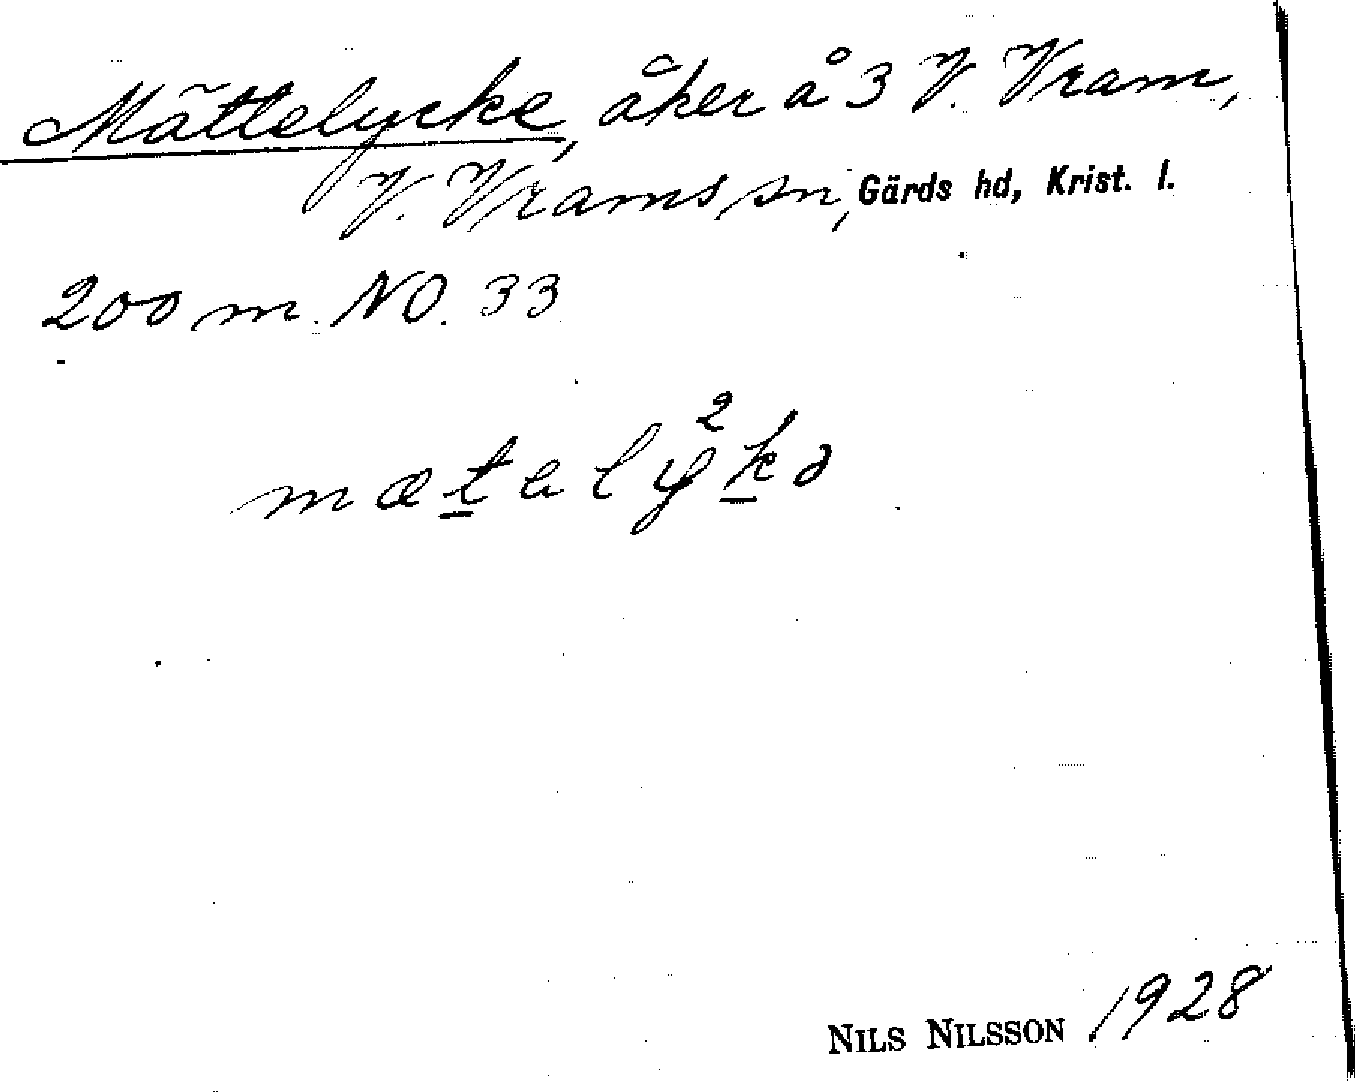 Mättelycke, åker å 3 V. Vram,
V. Vrams sn, Gärds hd, Krist. l.
200 m. NO. 33
mætaly²kə
NILS NILSSON 1928